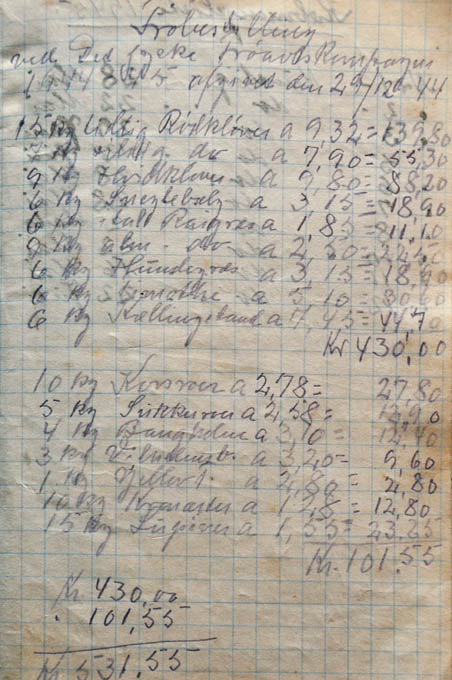 Fröbestilling
ved Det jydske Frøavlskompagni
1944 45 afgivet den 29/12 44
15 kg tidlig Rödkløver a 9,32 = 139,80
7 kg do a 7,90 = 55,30
9 kg Hvidkløver a 9,80 = 88,20
6 kg Sneglebælg a 3,15 = 18,90
6 kg ital Raigræs a 1,85 = 11,10
9 kg alm. do a 2,50 = 22,50
6 kg Hundegræs a 3,15 = 18,90
6 kg a 5,10 = 30,60
6 kg Kællingetand a 7,45 = 44,70
Kr 430,00
10 kg a 2,78 = 27,80
5 kg a 2,58 = 12,90
4 kg a 3,10 = 12,40
3 kg a 3,20 = 9,60
1 kg a 2,80 = 2,80
10 kg a 1,28 = 12,80
15 kg a 1,55 = 23.25
Kr. 101.55
Kr 430,00
" 101,55
Kr 531.55